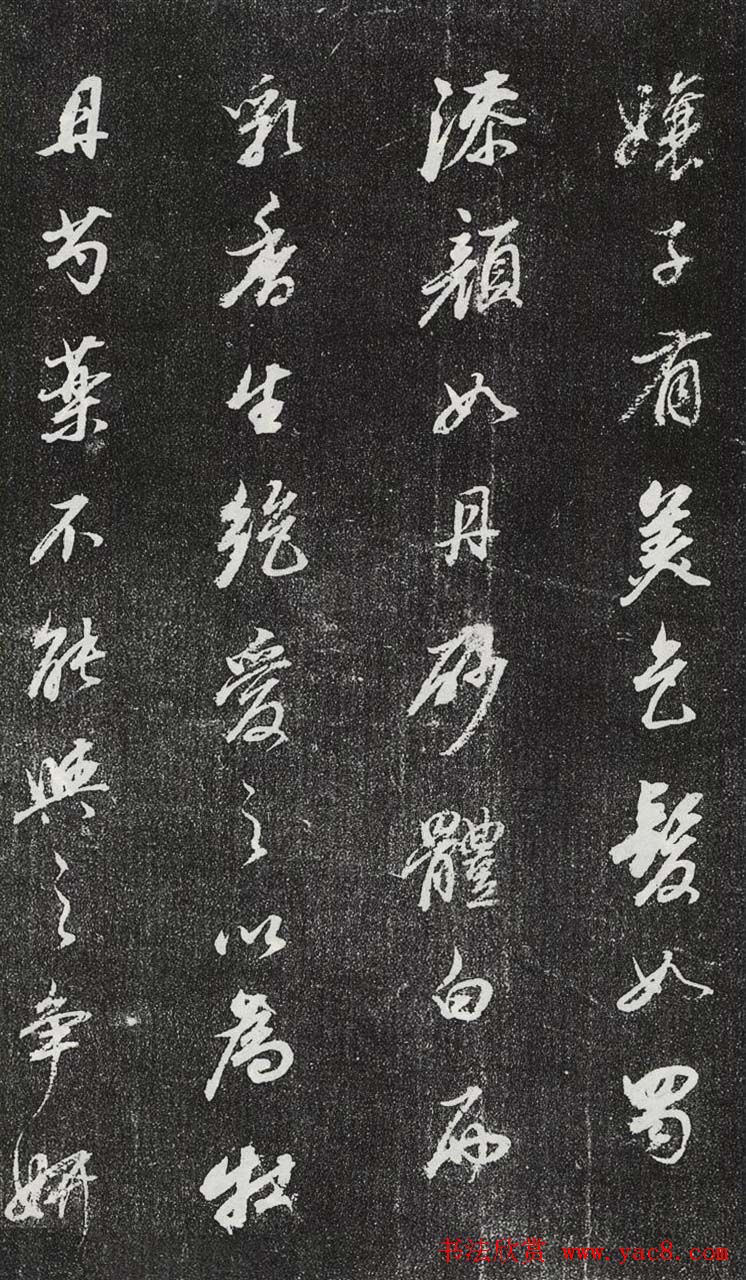 孃子有美色髮如蜀
漆顏如丹砂體白而
乳香生絶愛之以為牡
丹芍藥不能與之争妍
书法欣赏 www.yac8.com